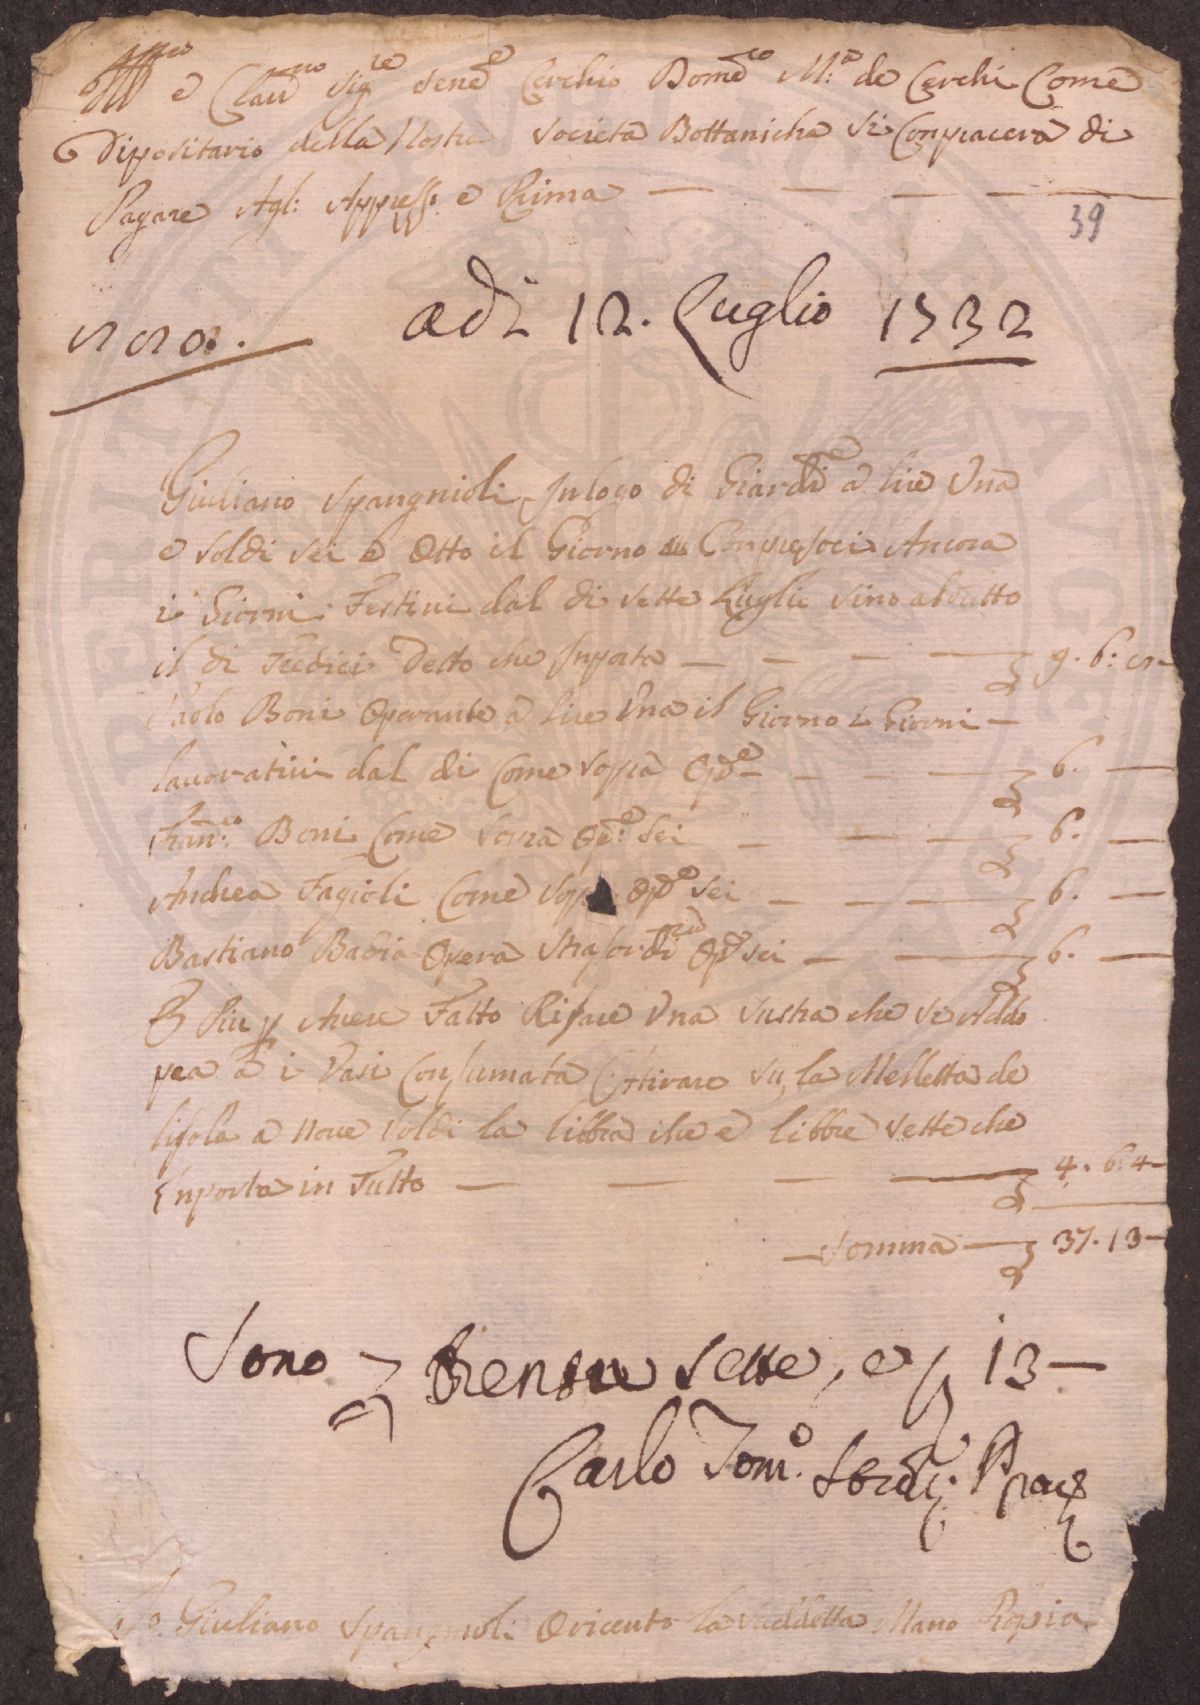 Ill.mo e Clar.mo Sig.re Sene.e Cerchio Dome.co M:a de Cerchi Come
Dipositario della Nostra Societa Bottanicha Si Conpiacera di
Pagare Agl: Appress: e Prima
39
adi 12. Luglio 1732
Giuliano Spangnioli Inlogo di Giardi.e a lire Una
e Soldi Sei e Otto il Giorno Conpresoci Ancora
i Giorni Festivi dal di Sette Luglie Sino atutto
il di Tredici Detto che Inporta 9. 6:
Paolo Boni Operante a lire Una il Giorno i Giorni
lavorativi dal di Come Sopra Op.e 6.
Fran:co Boni Come Sopra Op:e Sei 6.
Andrea Fagioli Come Sop Op.e Sei 6.
Bastiano Badia Opera Op.e Sei 6.
E Piu p Avere Fatto Rifare Una che Si Addo
pea a i Vasi Consumata Attirare Su la Melletta de
lisola a Nove Soldi la Libbra che e Libbre Sette che
Inporta in Tutto 4. 6: 4
Somma 37. 13
Sono Trenta Sette, e 13
Carlo Tom.o
Io Giuliano Spangnioli O ricevto la Suddetta Mano Ropia